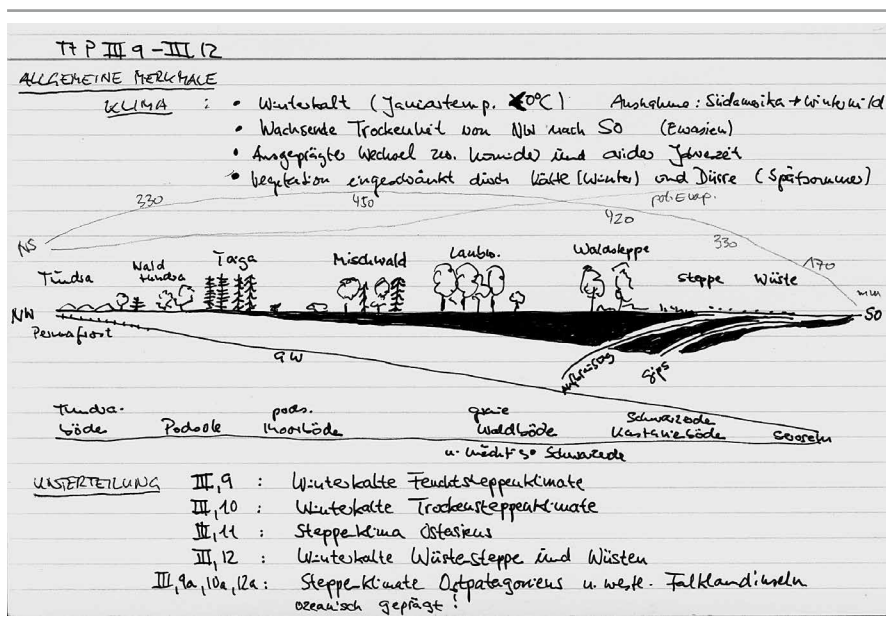 TTP III 9 - III, 12
ALLGEMEINE MERKMALE
KLIMA : • Winterkalt (Januartemp. <0°C) Ausnahme: Südamerika → wintermild
• Wachsende Trockenheit von NW nach SO (Eurasien)
• Ausgeprägter Wechsel zw. humider und arider Jahreszeit
• Vegetation eingeschränkt durch Kälte (Winter) und Dürre (Spätsommer)
330 450 pot. Evap.
420
NS 330
170
Tundra Wald tundra Taiga Mischwald Laubw. Waldsteppe Steppe Wüste
mm
NW SO
Permafrost
GW Gips
Tundra- pods. graue Schwarzerde
böde Podsole Moorböde Waldböde Kastanieböde Serosem
u. mächtige Schwarzerde
UNTERTEILUNG III, 9 : Winterkalte Feuchtsteppenklimate
III, 10 : Winterkalte Trockensteppenklimate
III, 11 : Steppenklima Ostasiens
III, 12 : Winterkalte Wüstensteppe und Wüsten
III, 9a, 10a, 12a : Steppenklimate Ostpatagoniens u. westl. Falklandinseln
ozeanisch geprägt !